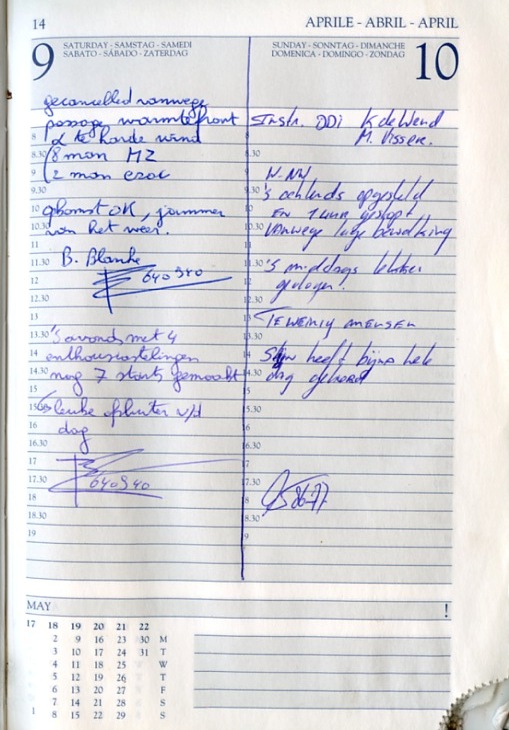 14
APRILE - ABRIL - APRIL
9
SATURDAY - SAMSTAG - SAMEDI
SABATO - SÁBADO - ZATERDAG
gecancelled vanwege
passage warmtefront
8 & te harde wind
8.30 (8 man MZ
9 (2 man ezac
9.30
10 opkomst OK, jammer
10.30 van het weer.
11
11.30 B. Blanke
12 640340
12.30
13
13.30 's avonds met 4
14 enthousiastelingen
14.30 nog 7 starts gemaakt
15
15.30 leuke afsluiter v/d
16 dag
16.30
17
17.30 640340
18
18.30
19
SUNDAY - SONNTAG - DIMANCHE
DOMENICA - DOMINGO - ZONDAG
10
Instr. DDI K de Wend
M. Visser.
8.30
9 W-NW
9.30 's ochtends opgesteld
10 EN 1 uur gestopt
10.30 vanwege lage bewolking
11
11.30 's middags lekker
12 gevlogen!
12.30
13 TE WEINIG MENSEN
13.30
14 heeft bijna hele
14.30 dag
15
15.30
16
16.30
17
17.30
8 86-77
18.30
9
MAY
!
17 18 19 20 21 22
2 9 16 23 30 M
3 10 17 24 31 T
4 11 18 25 W
5 12 19 26 T
6 13 20 27 F
7 14 21 28 S
1 8 15 22 29 S